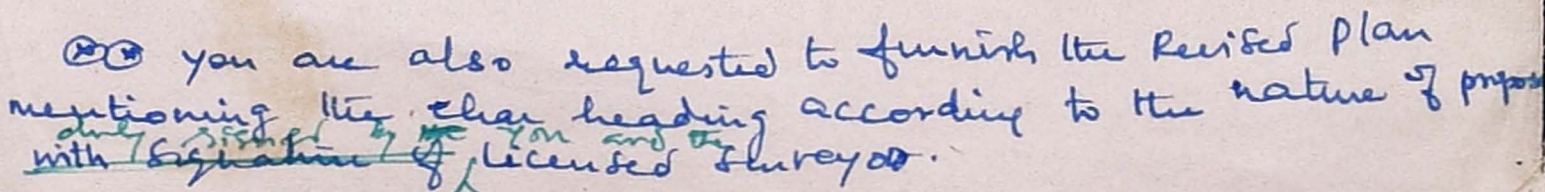 ** you are also requested to furnish the Revised plan
mentioning the clear heading according to the nature of propos
duly signed by you and the
with signature of Licensed surveyor.